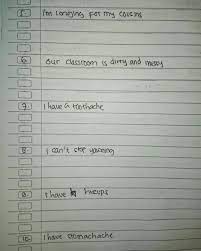 5. I'm longing for my cousins
6. Our classroom is dirty and messy
7. I have a toothache
8. I can't stop yawning
9. I have hiccups
10. I have stomachache